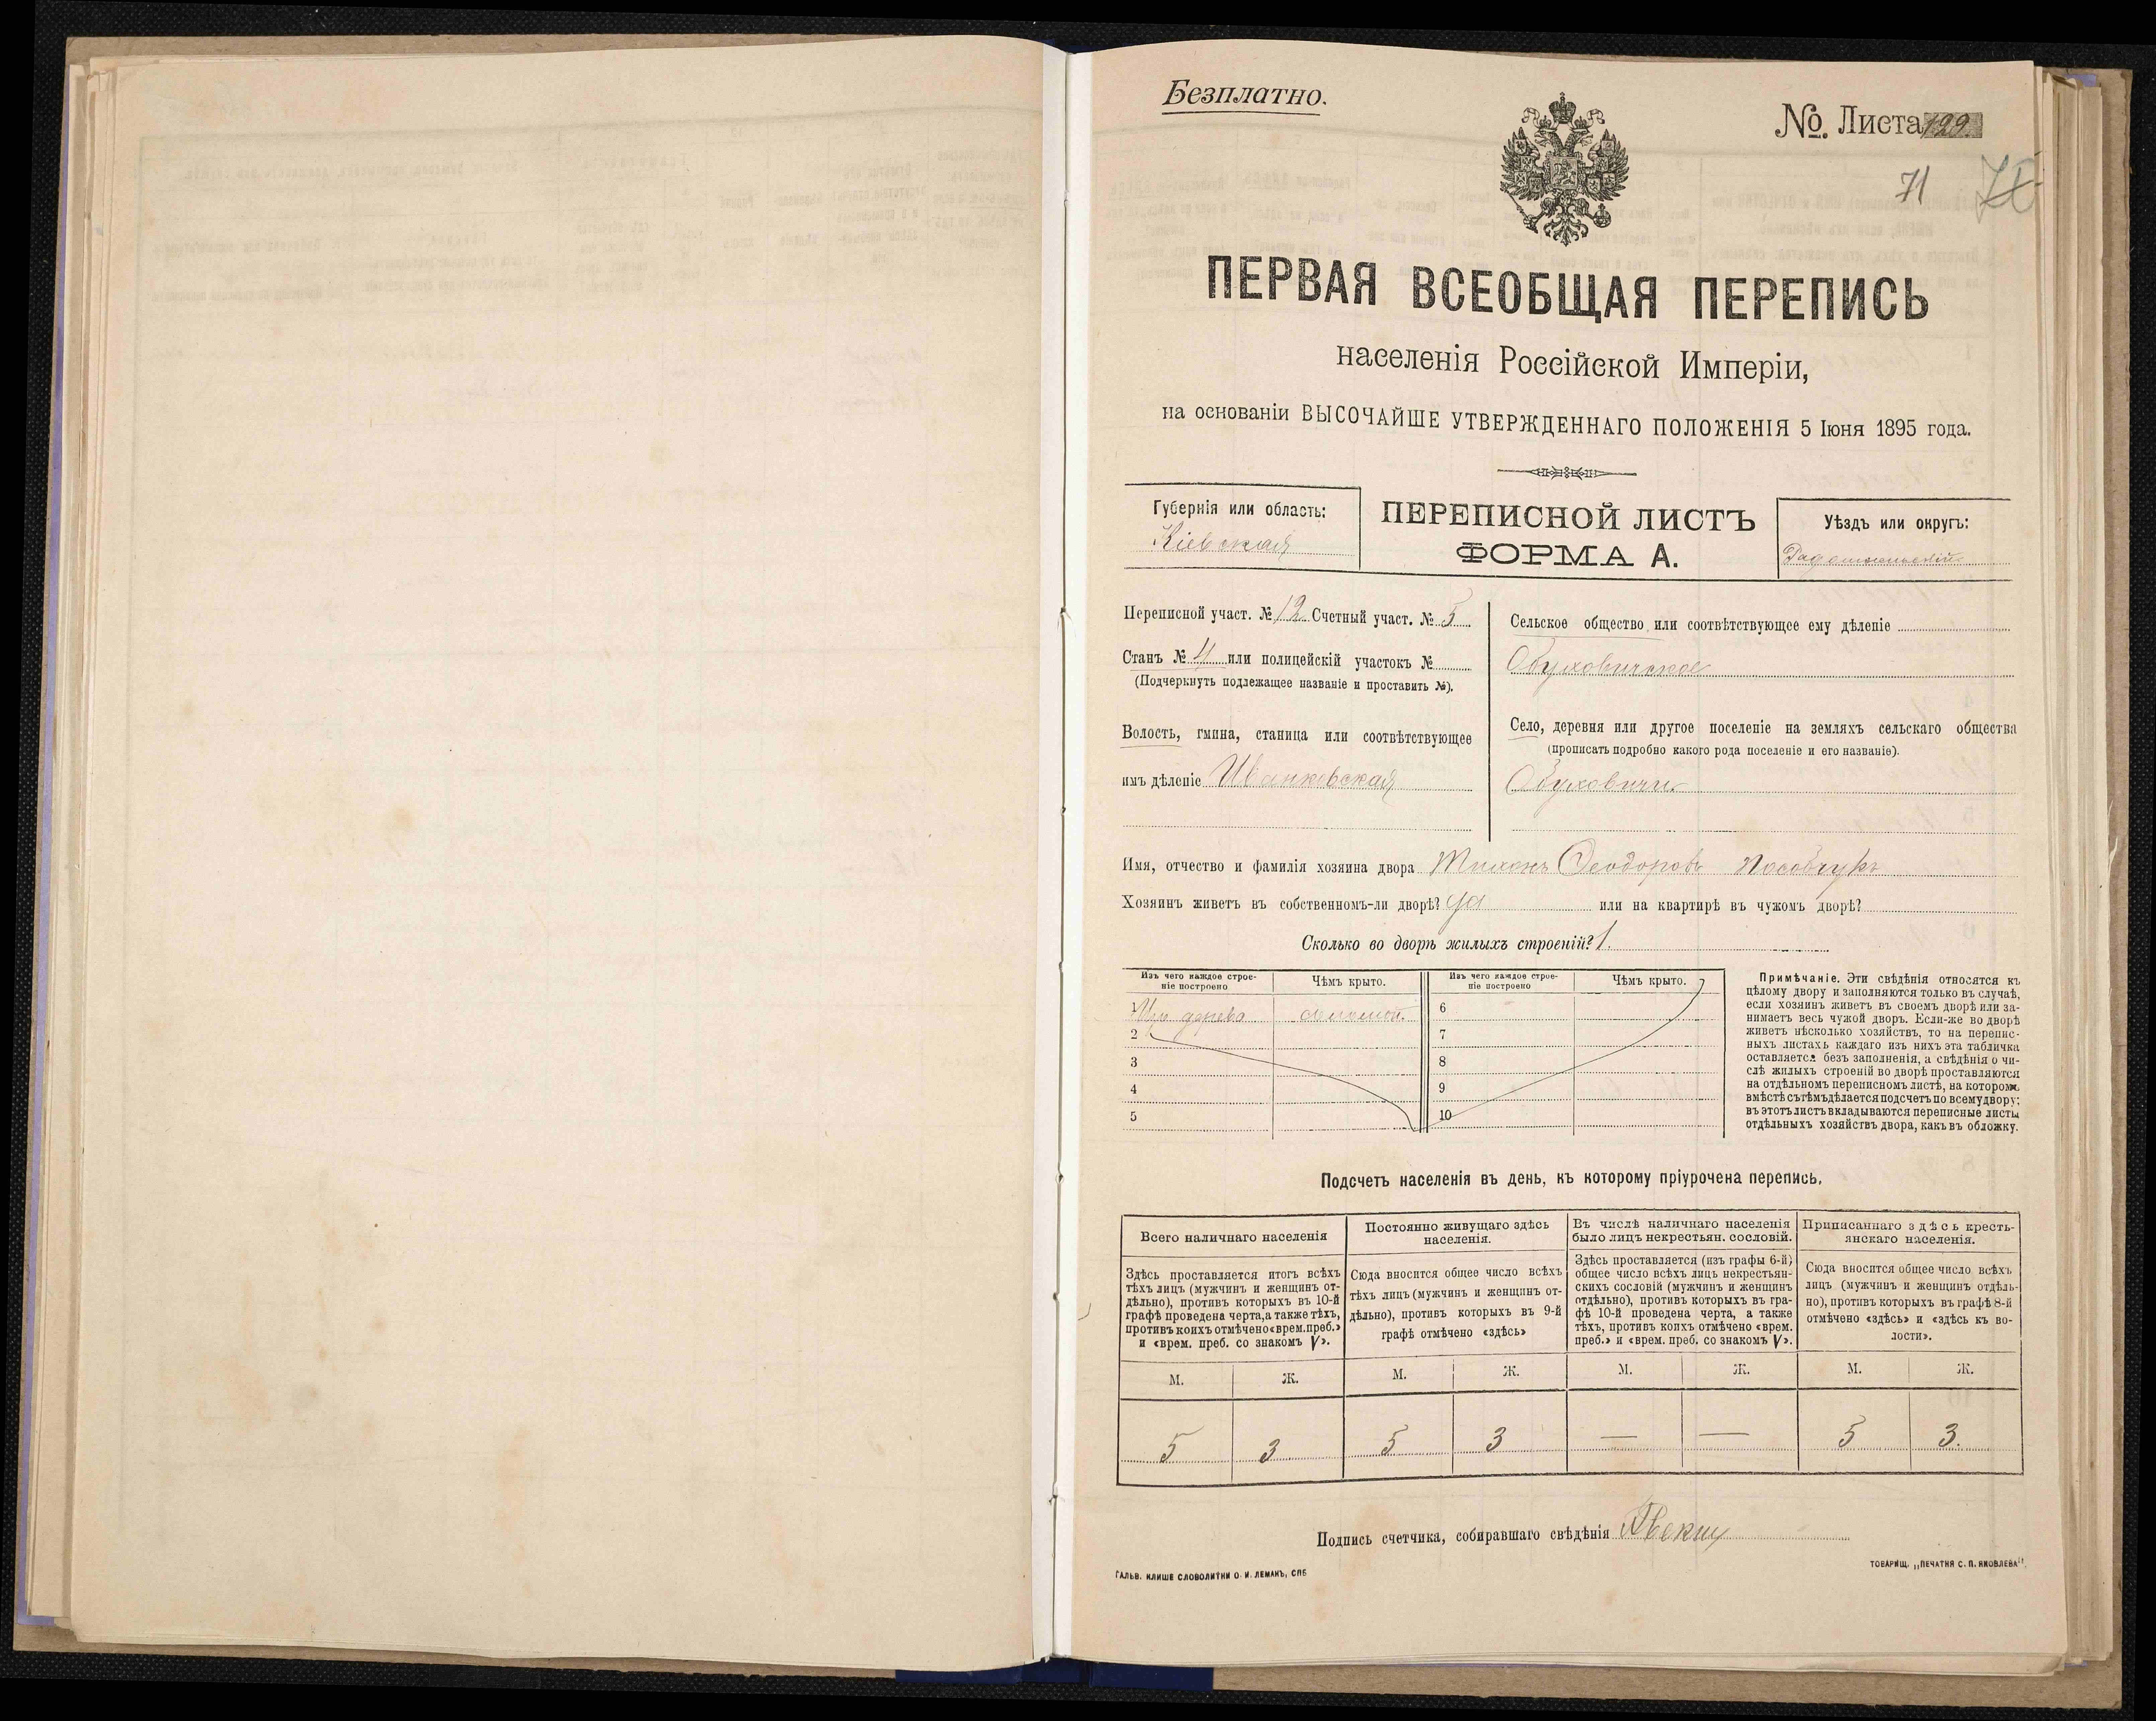 Безплатно.
№ Листа 129.
71
ПЕРВАЯ ВСЕОБЩАЯ ПЕРЕПИСЬ
населенія Россійской Имперіи,
на основаніи ВЫСОЧАЙШЕ УТВЕРЖДЕННАГО ПОЛОЖЕНІЯ 5 Іюня 1895 года.
Губернія или область:
Кіевская
ПЕРЕПИСНОЙ ЛИСТЪ
ФОРМА А.
Уѣздъ или округъ:
Радомысльскій
Переписной участ. № 12 Счетный участ. № 5
Станъ № 4 или полицейскій участокъ №
(Подчеркнуть подлежащее названіе и проставить №).
Волость, гмина, станица или соотвѣтствующее
имъ дѣленіе Иванковская
Сельское общество или соотвѣтствующее ему дѣленіе
Обуховичское
Село, деревня или другое поселеніе на земляхъ сельскаго общества
(прописать подробно какого рода поселеніе и его названіе).
Обуховичи
Имя, отчество и фамилія хозяина двора Тихонъ Ѳеодоровъ Носовчукъ
Хозяинъ живетъ въ собственномъ-ли дворѣ? да или на квартирѣ въ чужомъ дворѣ?
Сколько во дворѣ жилыхъ строеній? 1.
Изъ чего каждое строе-
ніе построено
Чѣмъ крыто.
Изъ чего каждое строе-
ніе построено
Чѣмъ крыто.
1 Изъ дерева соломой 6
2 7
3 8
4 9
5 10
Примѣчаніе. Эти свѣдѣнія относятся къ
цѣлому двору и заполняются только въ случаѣ,
если хозяинъ живетъ въ своемъ дворѣ или за-
нимаетъ весь чужой дворъ. Если-же во дворѣ
живетъ нѣсколько хозяйствъ, то на перепис-
ныхъ листахъ каждаго изъ нихъ эта табличка
оставляется безъ заполненія, а свѣдѣнія о чи-
слѣ жилыхъ строеній во дворѣ проставляются
на отдѣльномъ переписномъ листѣ, на которомъ
вмѣстѣ съ тѣмъ дѣлается подсчетъ по всему двору;
въ этотъ листъ вкладываются переписные листы
отдѣльныхъ хозяйствъ двора, какъ въ обложку.
Подсчетъ населенія въ день, къ которому пріурочена перепись.
Всего наличнаго населенія
Здѣсь проставляется итогъ всѣхъ
тѣхъ лицъ (мужчинъ и женщинъ от-
дѣльно), противъ которыхъ въ 10-й
графѣ проведена черта, а также тѣхъ,
противъ коихъ отмѣчено «врем. преб.»
и «врем. преб. со знакомъ V».
Постоянно живущаго здѣсь
населенія.
Сюда вносится общее число всѣхъ
тѣхъ лицъ (мужчинъ и женщинъ от-
дѣльно), противъ которыхъ въ 9-й
графѣ отмѣчено «здѣсь»
Въ числѣ наличнаго населенія
было лицъ некрестьян. сословій.
Здѣсь проставляется (изъ графы 6-й)
общее число всѣхъ лицъ некрестьян-
скихъ сословій (мужчинъ и женщинъ
отдѣльно), противъ которыхъ въ гра-
фѣ 10-й проведена черта, а также
тѣхъ, противъ коихъ отмѣчено «врем.
преб.» и «врем. преб. со знакомъ V».
Приписаннаго здѣсь кресть-
янскаго населенія.
Сюда вносится общее число всѣхъ
лицъ (мужчинъ и женщинъ отдѣль-
но), противъ которыхъ въ графѣ 8-й
отмѣчено «здѣсь» и «здѣсь къ во-
лости».
М. Ж. М. Ж. М. Ж. М. Ж.
5 3 5 3 — — 5 3.
Подпись счетчика, собиравшаго свѣдѣнія
ГАЛЬВ. КЛИШЕ СЛОВОЛИТНИ О. И. ЛЕМАНЪ, СПБ
ТОВАРИЩ. „ПЕЧАТНЯ С. П. ЯКОВЛЕВА".